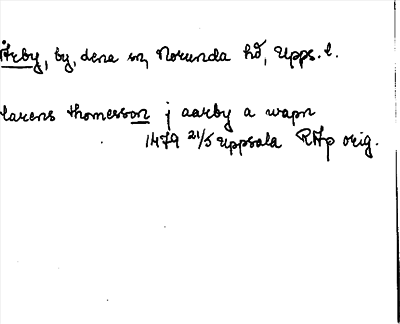 Årby, by, dena sn, Norunda hd, Upps. l.
larens thomesson j aarby a wapn
1479 21/5 Uppsala RAp orig.